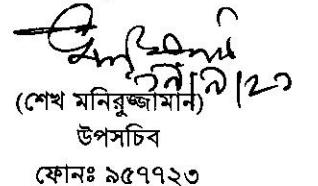 (শেখ মনিরুজ্জামান)
উপসচিব
ফোনঃ ৯৫৭৭২৩